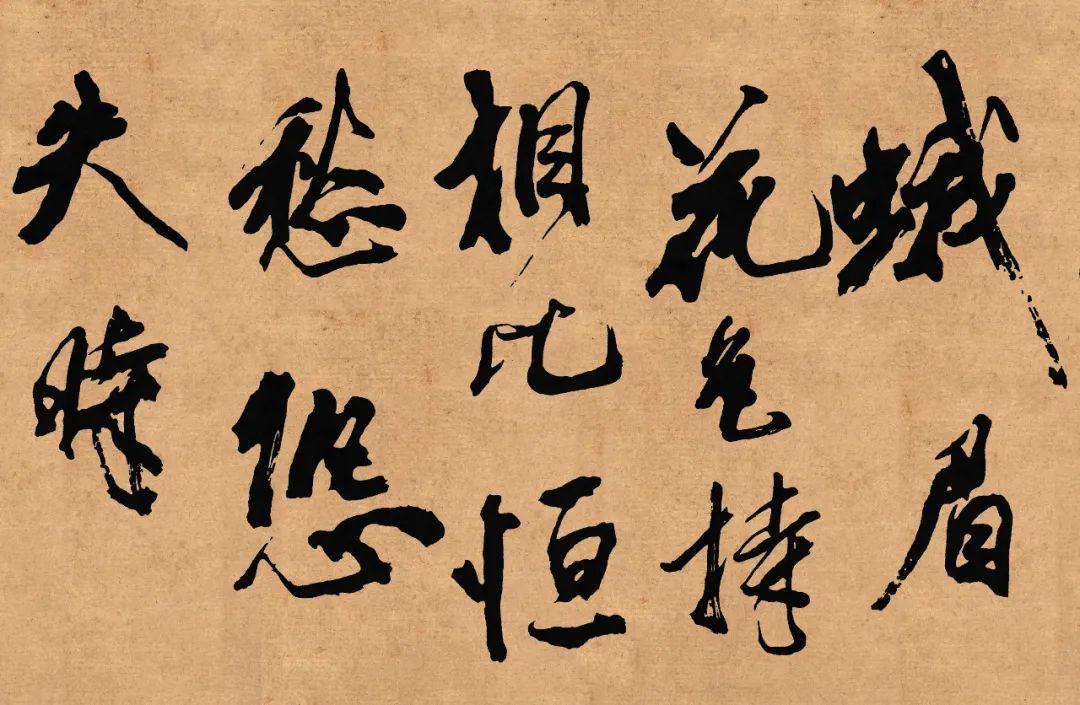 蛾眉
花色持
相比恒
愁恐
失時